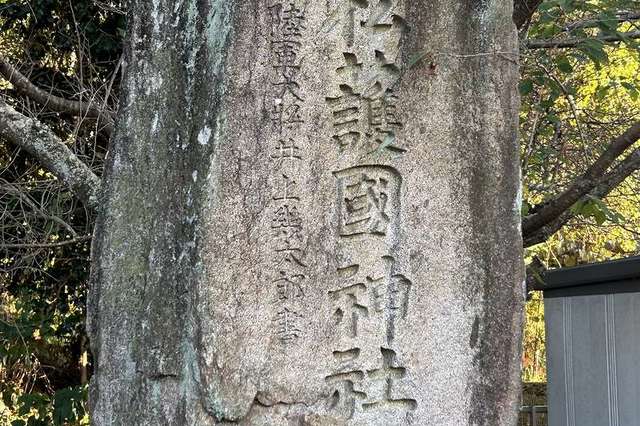 松護國神社
陸軍大將井上幾太郎書